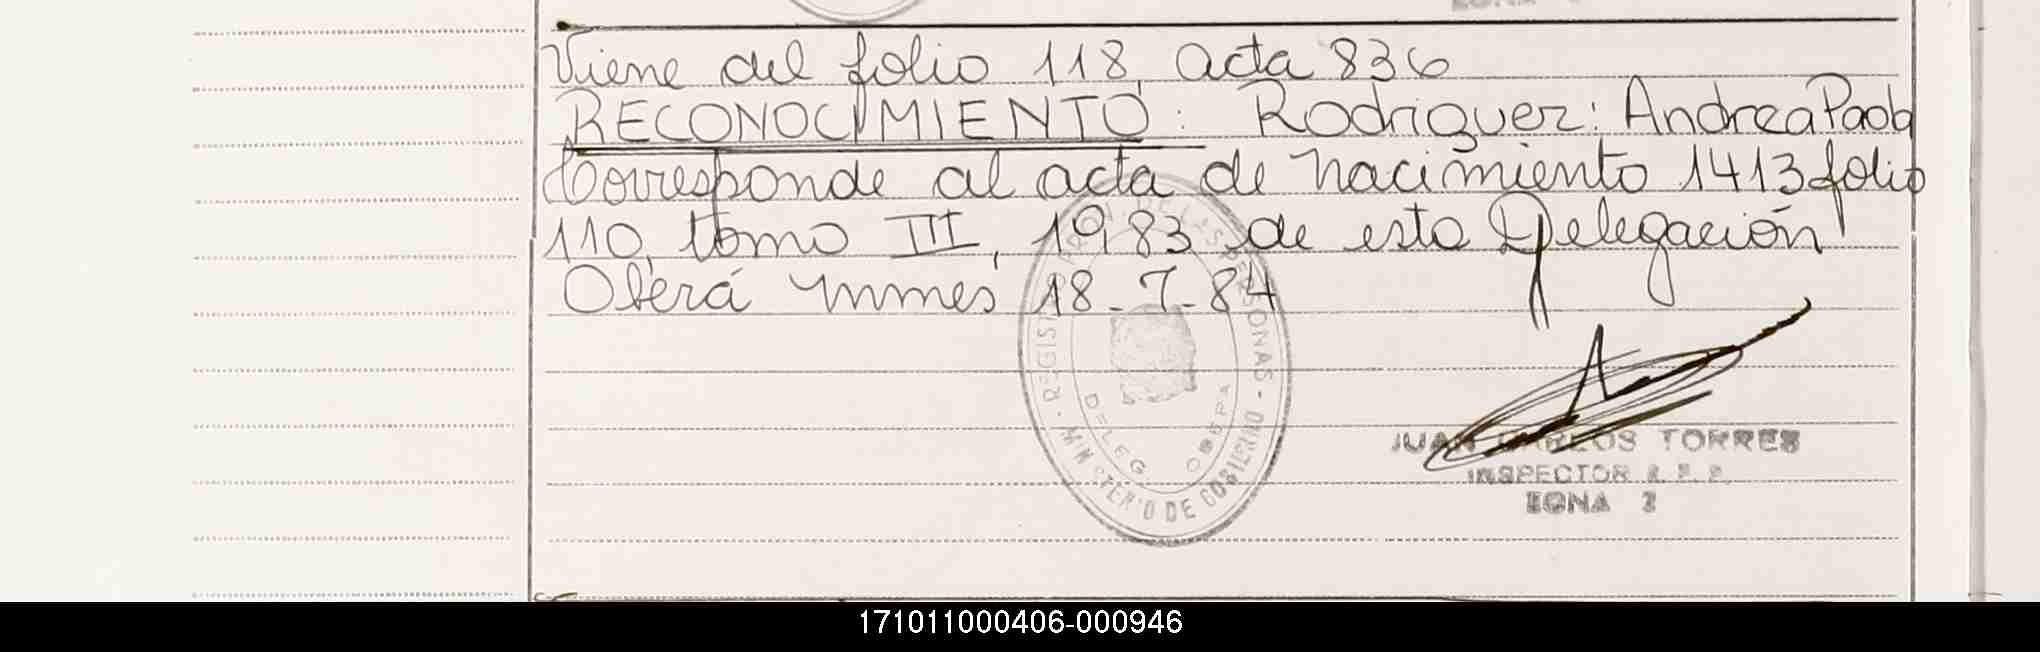 Viene del folio 118, acta 836
RECONOCIMIENTO: Rodriguez: Andrea Paola
Corresponde al acta de nacimiento 1413 folio
110, tomo III, 1983 de esta Delegación
Oberá Mnes, 18-7-84
REGIST DE LAS PERSONAS - MINISTERIO DE GOBIERNO
DELEG OBERA
JUAN CARLOS TORRES
INSPECTOR R. P. P.
ZONA 2
171011000406-000946